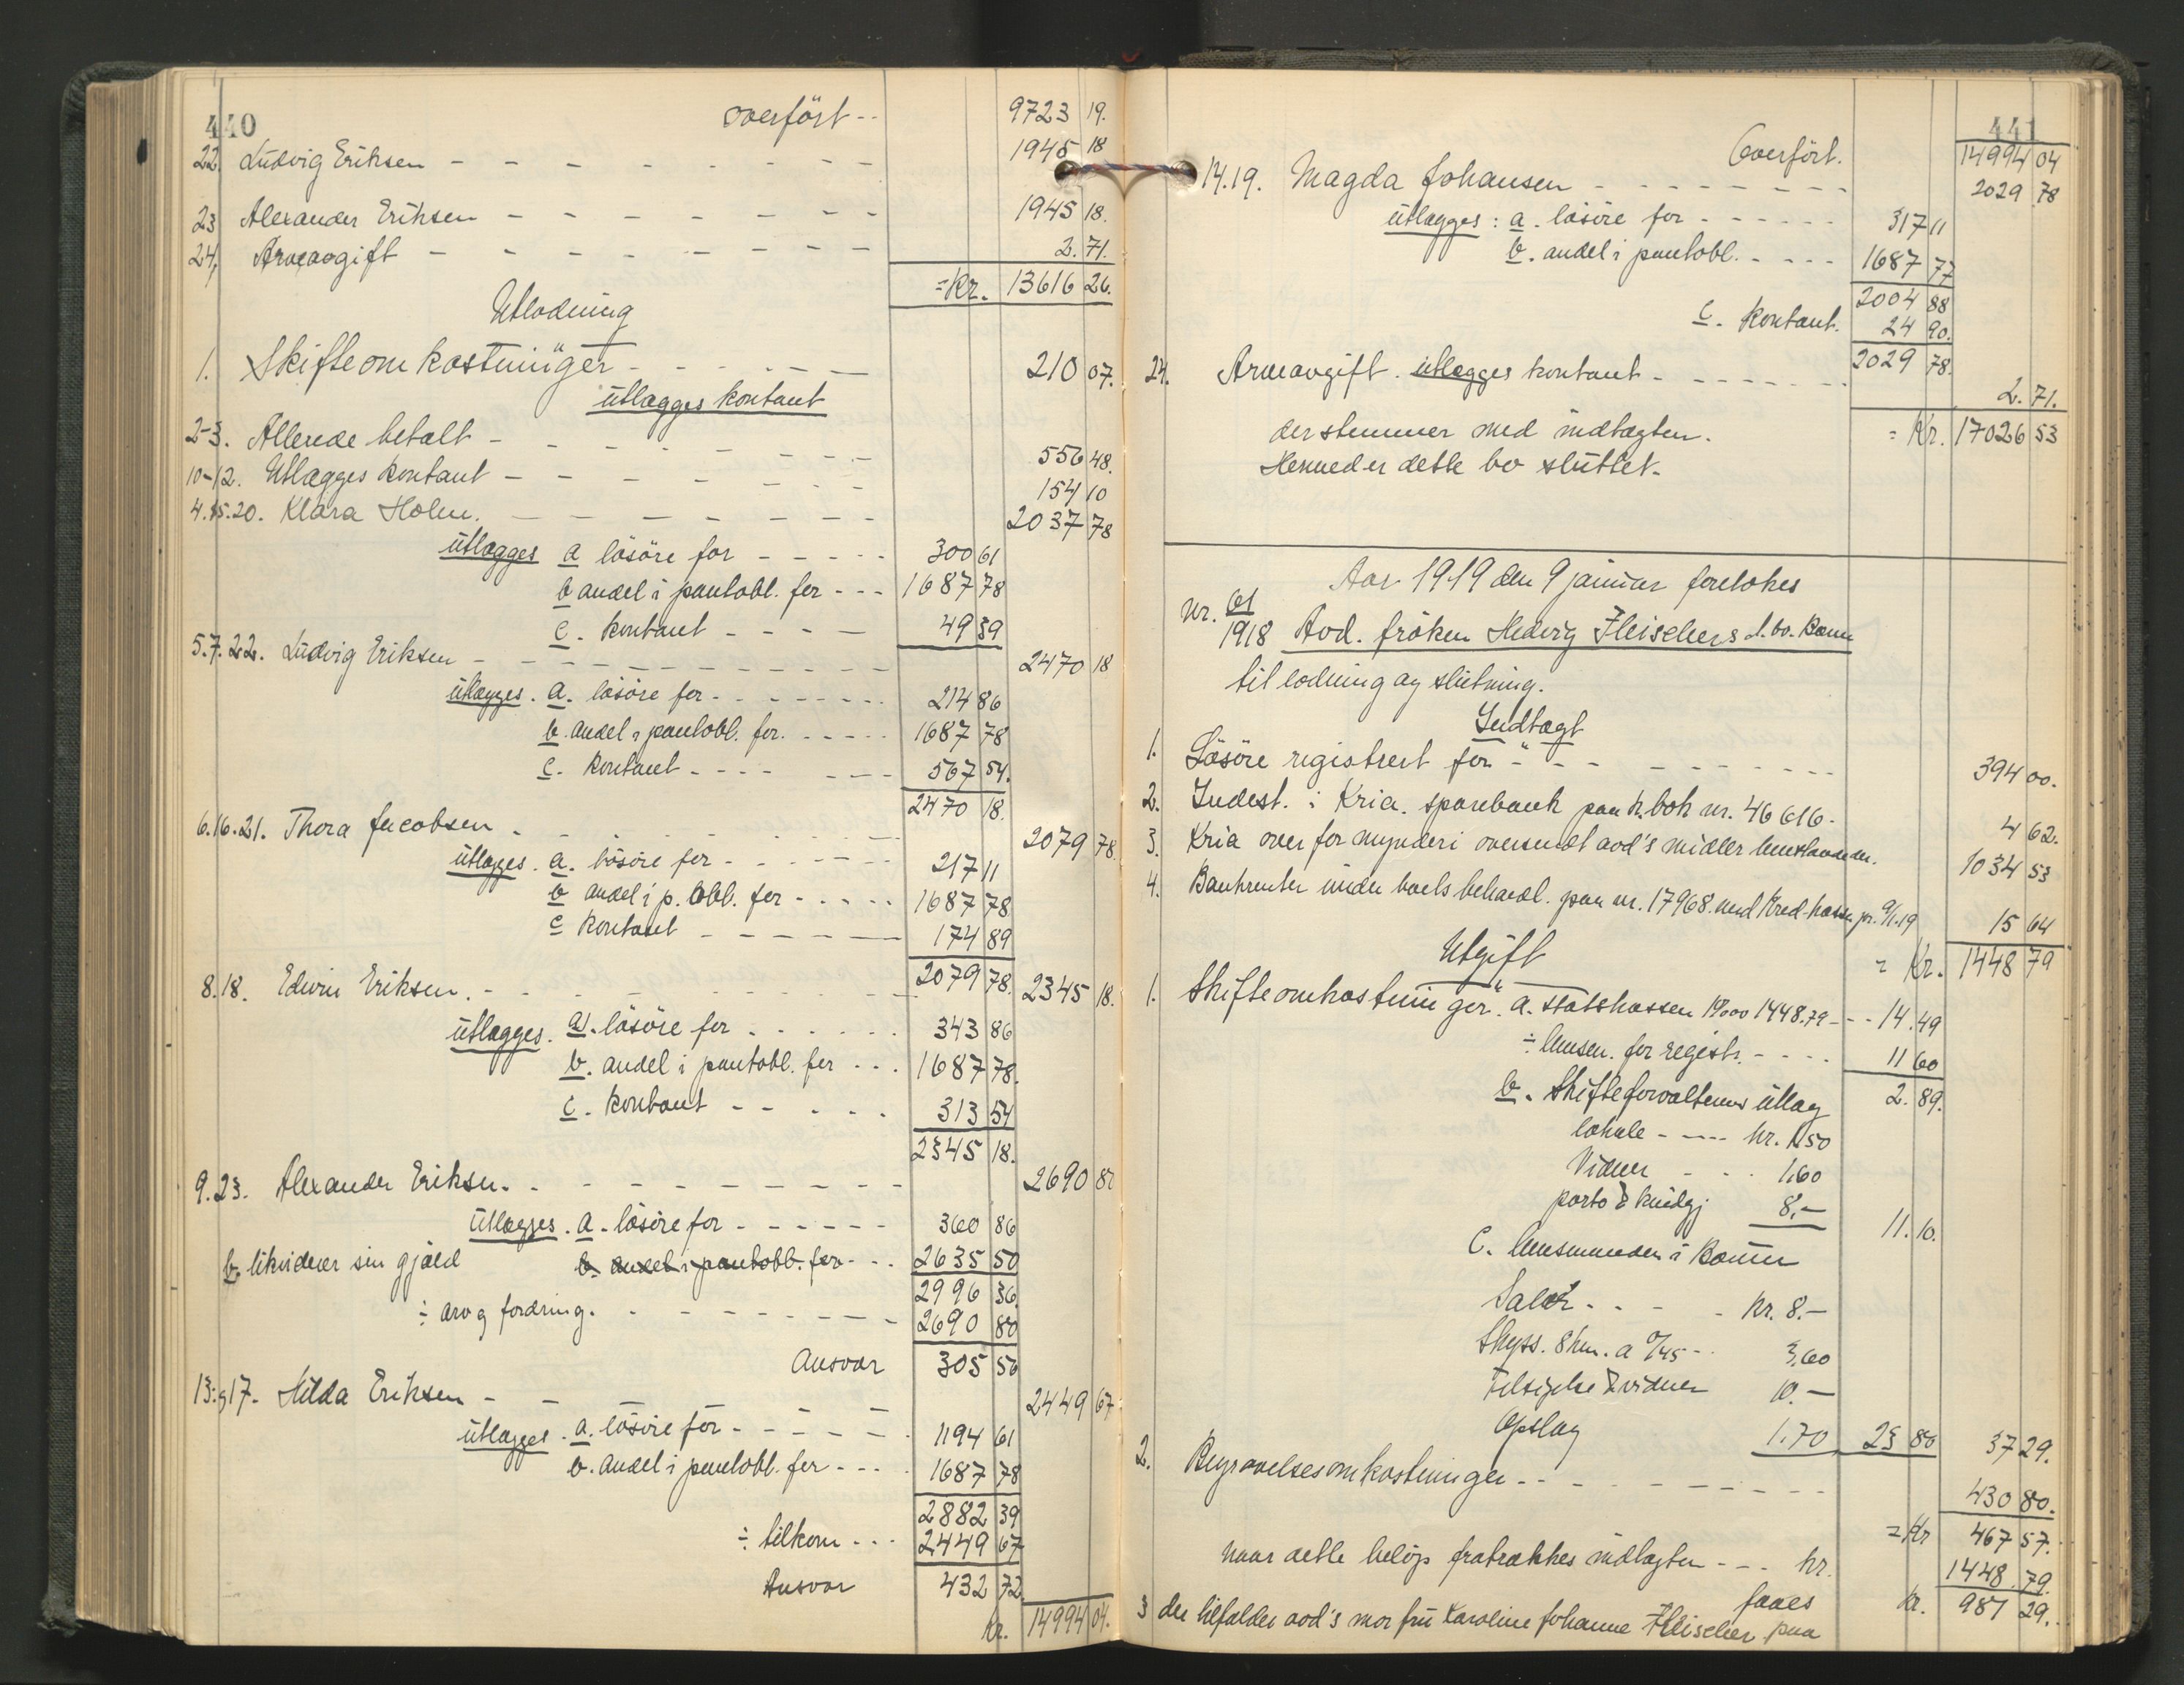 440
overført -- 9723 19.
22. Ludvig Eriksen - - - - - - - 1945 18
23 Alexander Eriksen - - - - - - - 1945 18.
24, Arveavgift - - - - - - 2. 71.
= Kr. 13616 26.
Utlodning
1. Skifteomkostninger - - - - - 210 07.
utlægges kontant
2-3. Allerede betalt - - - - - - - 556 48.
10-12. Utlægges kontant - - - - - - - 154 10
4.15.20. Klara Holm. - - - - - - - 2037 78
utlægges a løsøre for - - - - - 300 61
b andel i pantobl. for - - - 1687 78
c. kontant - - - - 49 39
5.7.22. Ludvig Eriksen - - - - - - - - - 2470 18
utlægges. a. løsøre for - - - - - - - 214 86
b. andel i pantobl. for. - - - - - 1687 78
c. kontant - - - - - - - 567 54.
2470 18.
6.16.21. Thora Jacobsen - - - - - - - 2079 78.
utlægges. a. løsøre for - - - - - - 217 11
b andel i p. obl. for - - - - - 1687 78
c kontant - - - - - - 174 89
2079 78.
8.18. Edwin Eriksen. - - - - - - - 2345 18.
utlægges. a). løsøre for - - - - - - 343 86
b. andel i pantobl. for - - - 1687 78.
c. kontant - - - - - 313 54
2345 18.
9.23. Alexander Eriksen. - - - - - - - - - 2690 80
utlægges. a. løsøre for - - - - - - 360 86
b. likviderer sin gjæld b. andel i pantobl. for - - - 2635 50
2996 36.
÷ arv og fordring. - - - - - - - 2690 80
Ansvar 305 56
13.og17. Hilda Eriksen - - - - - 2449 67
utlægges. a. løsøre for - - - - - 1194 61
b. andel i pantobl. for - - - - 1687 78
2882 39
÷ tilkom - - - 2449 67
Ansvar 432 72
Kr. 14994 04.
441
Overført. 14994 04
14.19. Magda Johansen - - - - - - - - 2029 78
utlægges: a. løsøre for - - - - - - 317 11
b. andel i pantobl. - - - - 1687 77
2004 88
c. kontant. 24 90.
2029 78.
24. Arveavgift. utlægges kontant - - - - - - - 2. 71.
der stemmer med indtægten. = Kr. 17026 53
Hermed er dette bo sluttet.
Aar 1919 den 9 januar foretokes
nr. 61/1918 Avd. frøken Hedvig Fleischers d.bo. Bærum
til lodning og slutning.
Indtægt
1. Løsøre registrert for - - - - - - - - - 394 00.
2. Indest. i Kria. sparebank paa k.bok nr. 46616. 4 62.
3. Kria overformynderi oversendt avd's midler 1034 53
4. Bankrenter under boets behandl. paa nr. 17968. ved Kred.kassen pr. 9/1.19 15 64
= Kr. 1448 79
Utgift
1. Skifteomkostninger. a. statskassen 1% 1448.79 - - - 14. 49
÷ lensm. for registr. - - - - 11 60
2. 89.
b. Skifteforvalterens utlæg
lokale - ---- kr. 1,50
Vidner - - - 1,60
porto & kundgj 8,- 11. 10.
C. lensmanden i Bærum
Salær - - - - kr. 8.-
Skyss. 8 km. a 0/45 - - 3,60
Tilsigelse & vidner 10.-
Opslag 1.70 23 80 37 29.
2. Begravelsesomkostninger - - - - - - - - - 430 80.
= Kr 467 57.
naar dette beløp fratrækkes indtægten - - - kr. 1448. 79.
faaes kr. 981 29.
3 der tilfalder avd's mor fru Karoline Johanne Fleischer paa